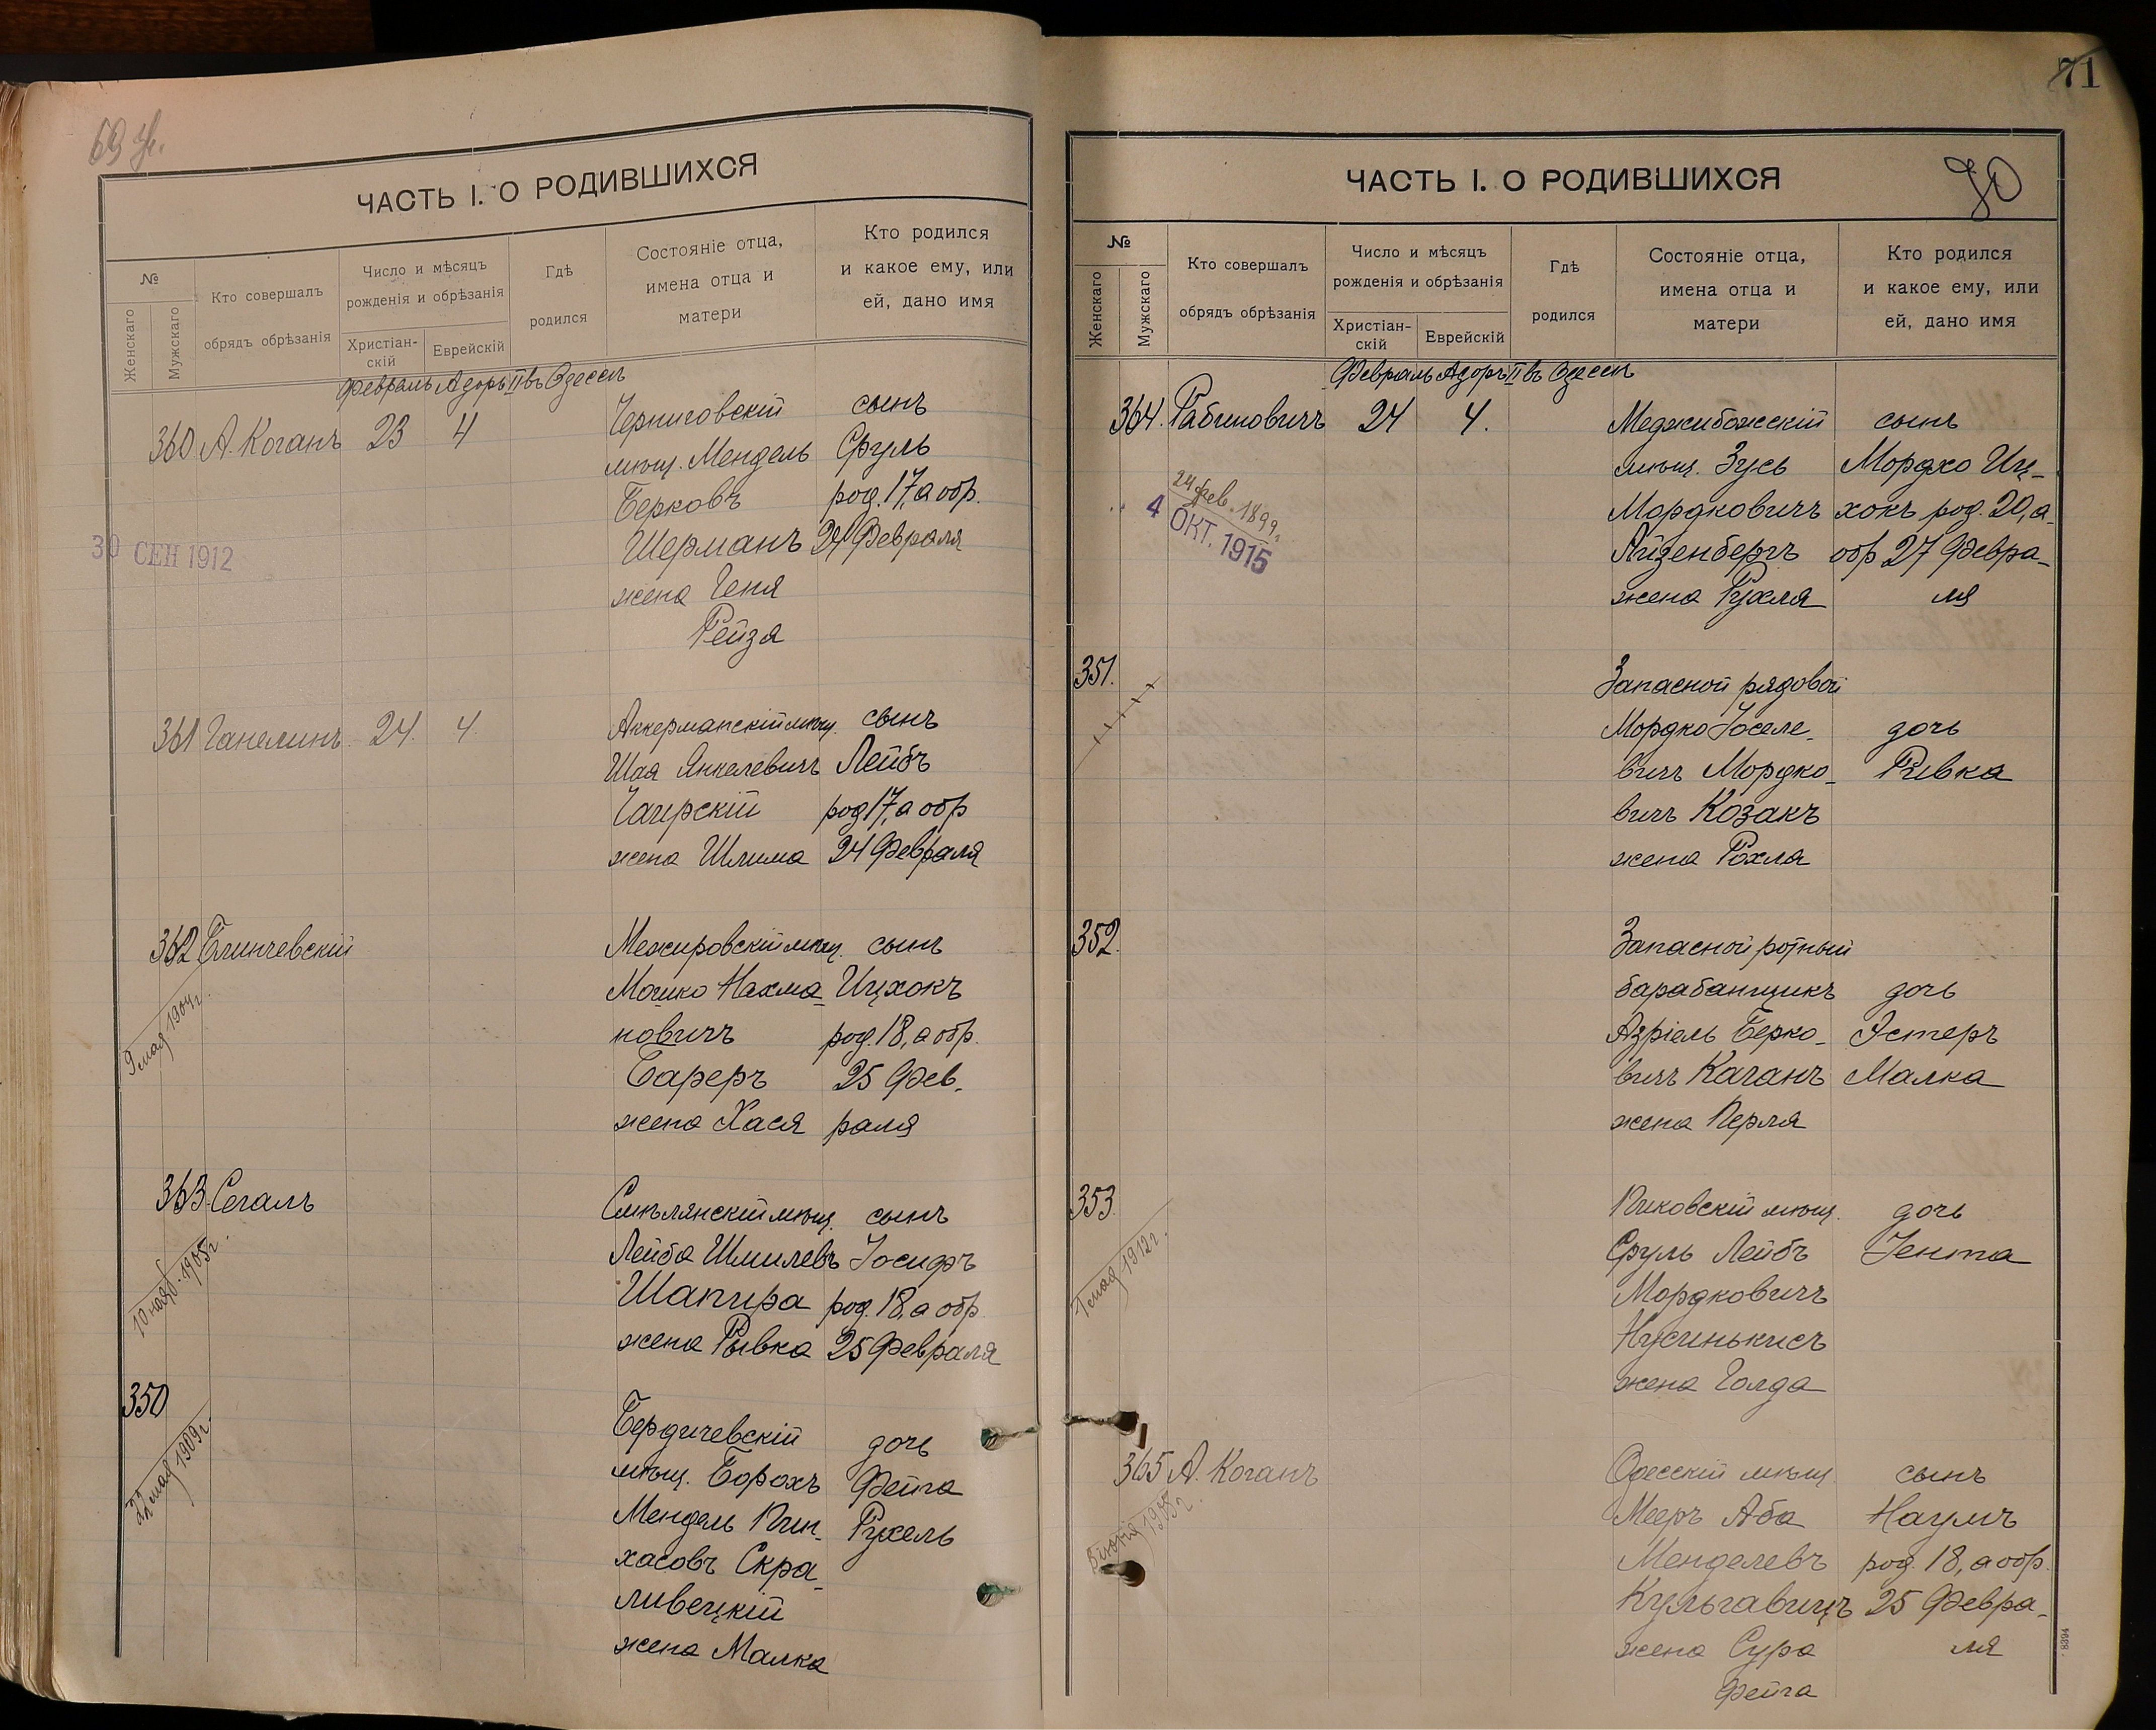 69 
ЧАСТЬ I. О РОДИВШИХСЯ
№
Женскаго
Мужскаго
Кто совершалъ
обрядъ обрѣзанія
Число и мѣсяцъ
рожденія и обрѣзанія
Христіан-
скій
Еврейскій
Гдѣ
родился
Состояніе отца,
имена отца и
матери
Кто родился
и какое ему, или
ей, дано имя
Февраль Адоръ II въ Одессѣ
360 А. Коганъ 23 4 Черниговскій сынъ
мѣщ. Мендель Сруль
Берковъ род. 17, а обр.
Шерманъ 24 Февраля
жена Геня
Рейза
30 СЕН 1912
361 Ганелинъ 24. 4. Аккерманскій мѣщ. сынъ
Шая Янкелевичъ Лейбъ
род 17, а обр
жена Шлима 24 Февраля
362 Блинчевскій Межировскій мѣщ. сынъ
Мошко Нахма- Ицхокъ
новичъ род. 18, а обр.
Бареръ 25 Фев-
жена Хася раля
9 мая 1904 г.
363. Сегалъ Смѣлянскій мѣщ. сынъ
Лейба Шмилевъ Іосифъ
Шапира род. 18, а обр
жена Рывка 25 Февраля
10 нояб. 1905 г.
350 Бердичевскій дочь
мѣщ. Борохъ Фейга
Мендель Пин- Рухель
хасовъ Скра-
ливецкій
жена Малка
22 мая 1909 г.
71
70
ЧАСТЬ I. О РОДИВШИХСЯ
№
Женскаго
Мужскаго
Кто совершалъ
обрядъ обрѣзанія
Число и мѣсяцъ
рожденія и обрѣзанія
Христіан-
скій
Еврейскій
Гдѣ
родился
Состояніе отца,
имена отца и
матери
Кто родился
и какое ему, или
ей, дано имя
Февраль Адоръ II въ Одессѣ
364. Рабиновичъ 24 4. Меджибожскій сынъ
мѣщ. Зусь Мордко Иц-
Мордковичъ хокъ род. 20, а
Айзенбергъ обр 27 Февра-
жена Рухля ля
24 фев. 1899 г.
4 ОКТ. 1915
351. Запасной рядовой
Мордко Іоселе- дочь
вичъ Мордко- Ривка
вичъ Козакъ
жена Рохля
352. Запасной ротный
барабанщикъ дочь
Азріель Берко- Эстеръ
вичъ Каганъ Малка
жена Перля
353. Пиковскій мѣщ. дочь
Сруль Лейбъ Іента
Мордковичъ
Нусинькисъ
жена Голда
1 мая 1912 г.
365 А. Коганъ Одесскій мѣщ. сынъ
Мееръ Аба Наумъ
Менделевъ род. 18, а обр.
Кульгавицъ 25 Февра-
жена Сура ля
Фейга
8394